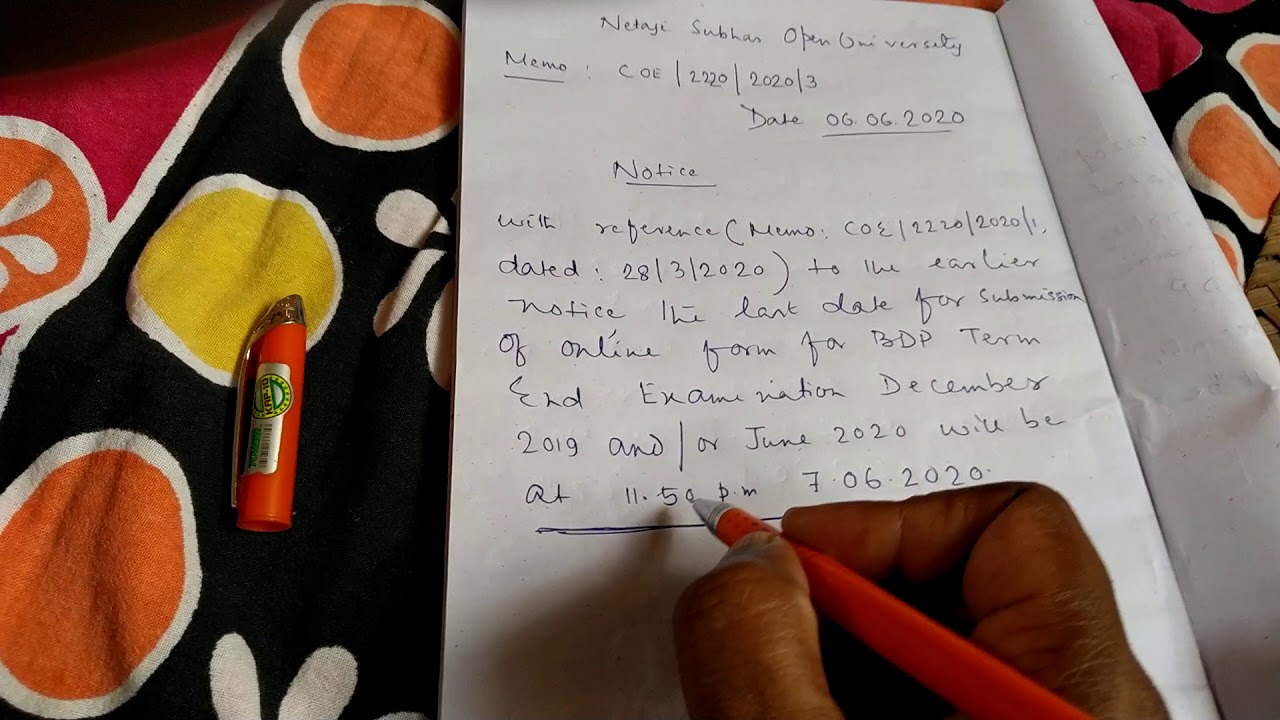 Netaji Subhas Open University
Memo : COE / 2220 / 2020/3
Date 06.06.2020
Notice
With reference (Memo: COE/2220/2020/1,
dated : 28/3/2020) to the earlier
notice the last date for submission
of online form for BDP Term
End Examination December
2019 and / or June 2020 will be
at 11.50 p.m 7.06.2020.